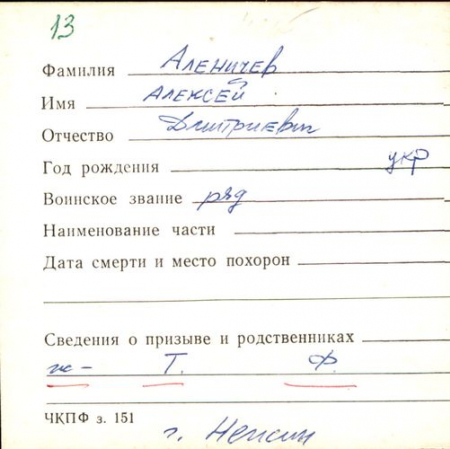 13
Фамилия Аленичев
Имя Алексей
Отчество Дмитриевич
Год рождения укр
Воинское звание ряд
Наименование части
Дата смерти и место похорон
Сведения о призыве и родственниках
ж- Т. Ф.
ЧКПФ з. 151
г. Нежин